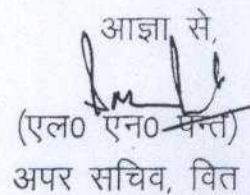 आज्ञा से,
(एल0 एन0 पन्त)
अपर सचिव, वित